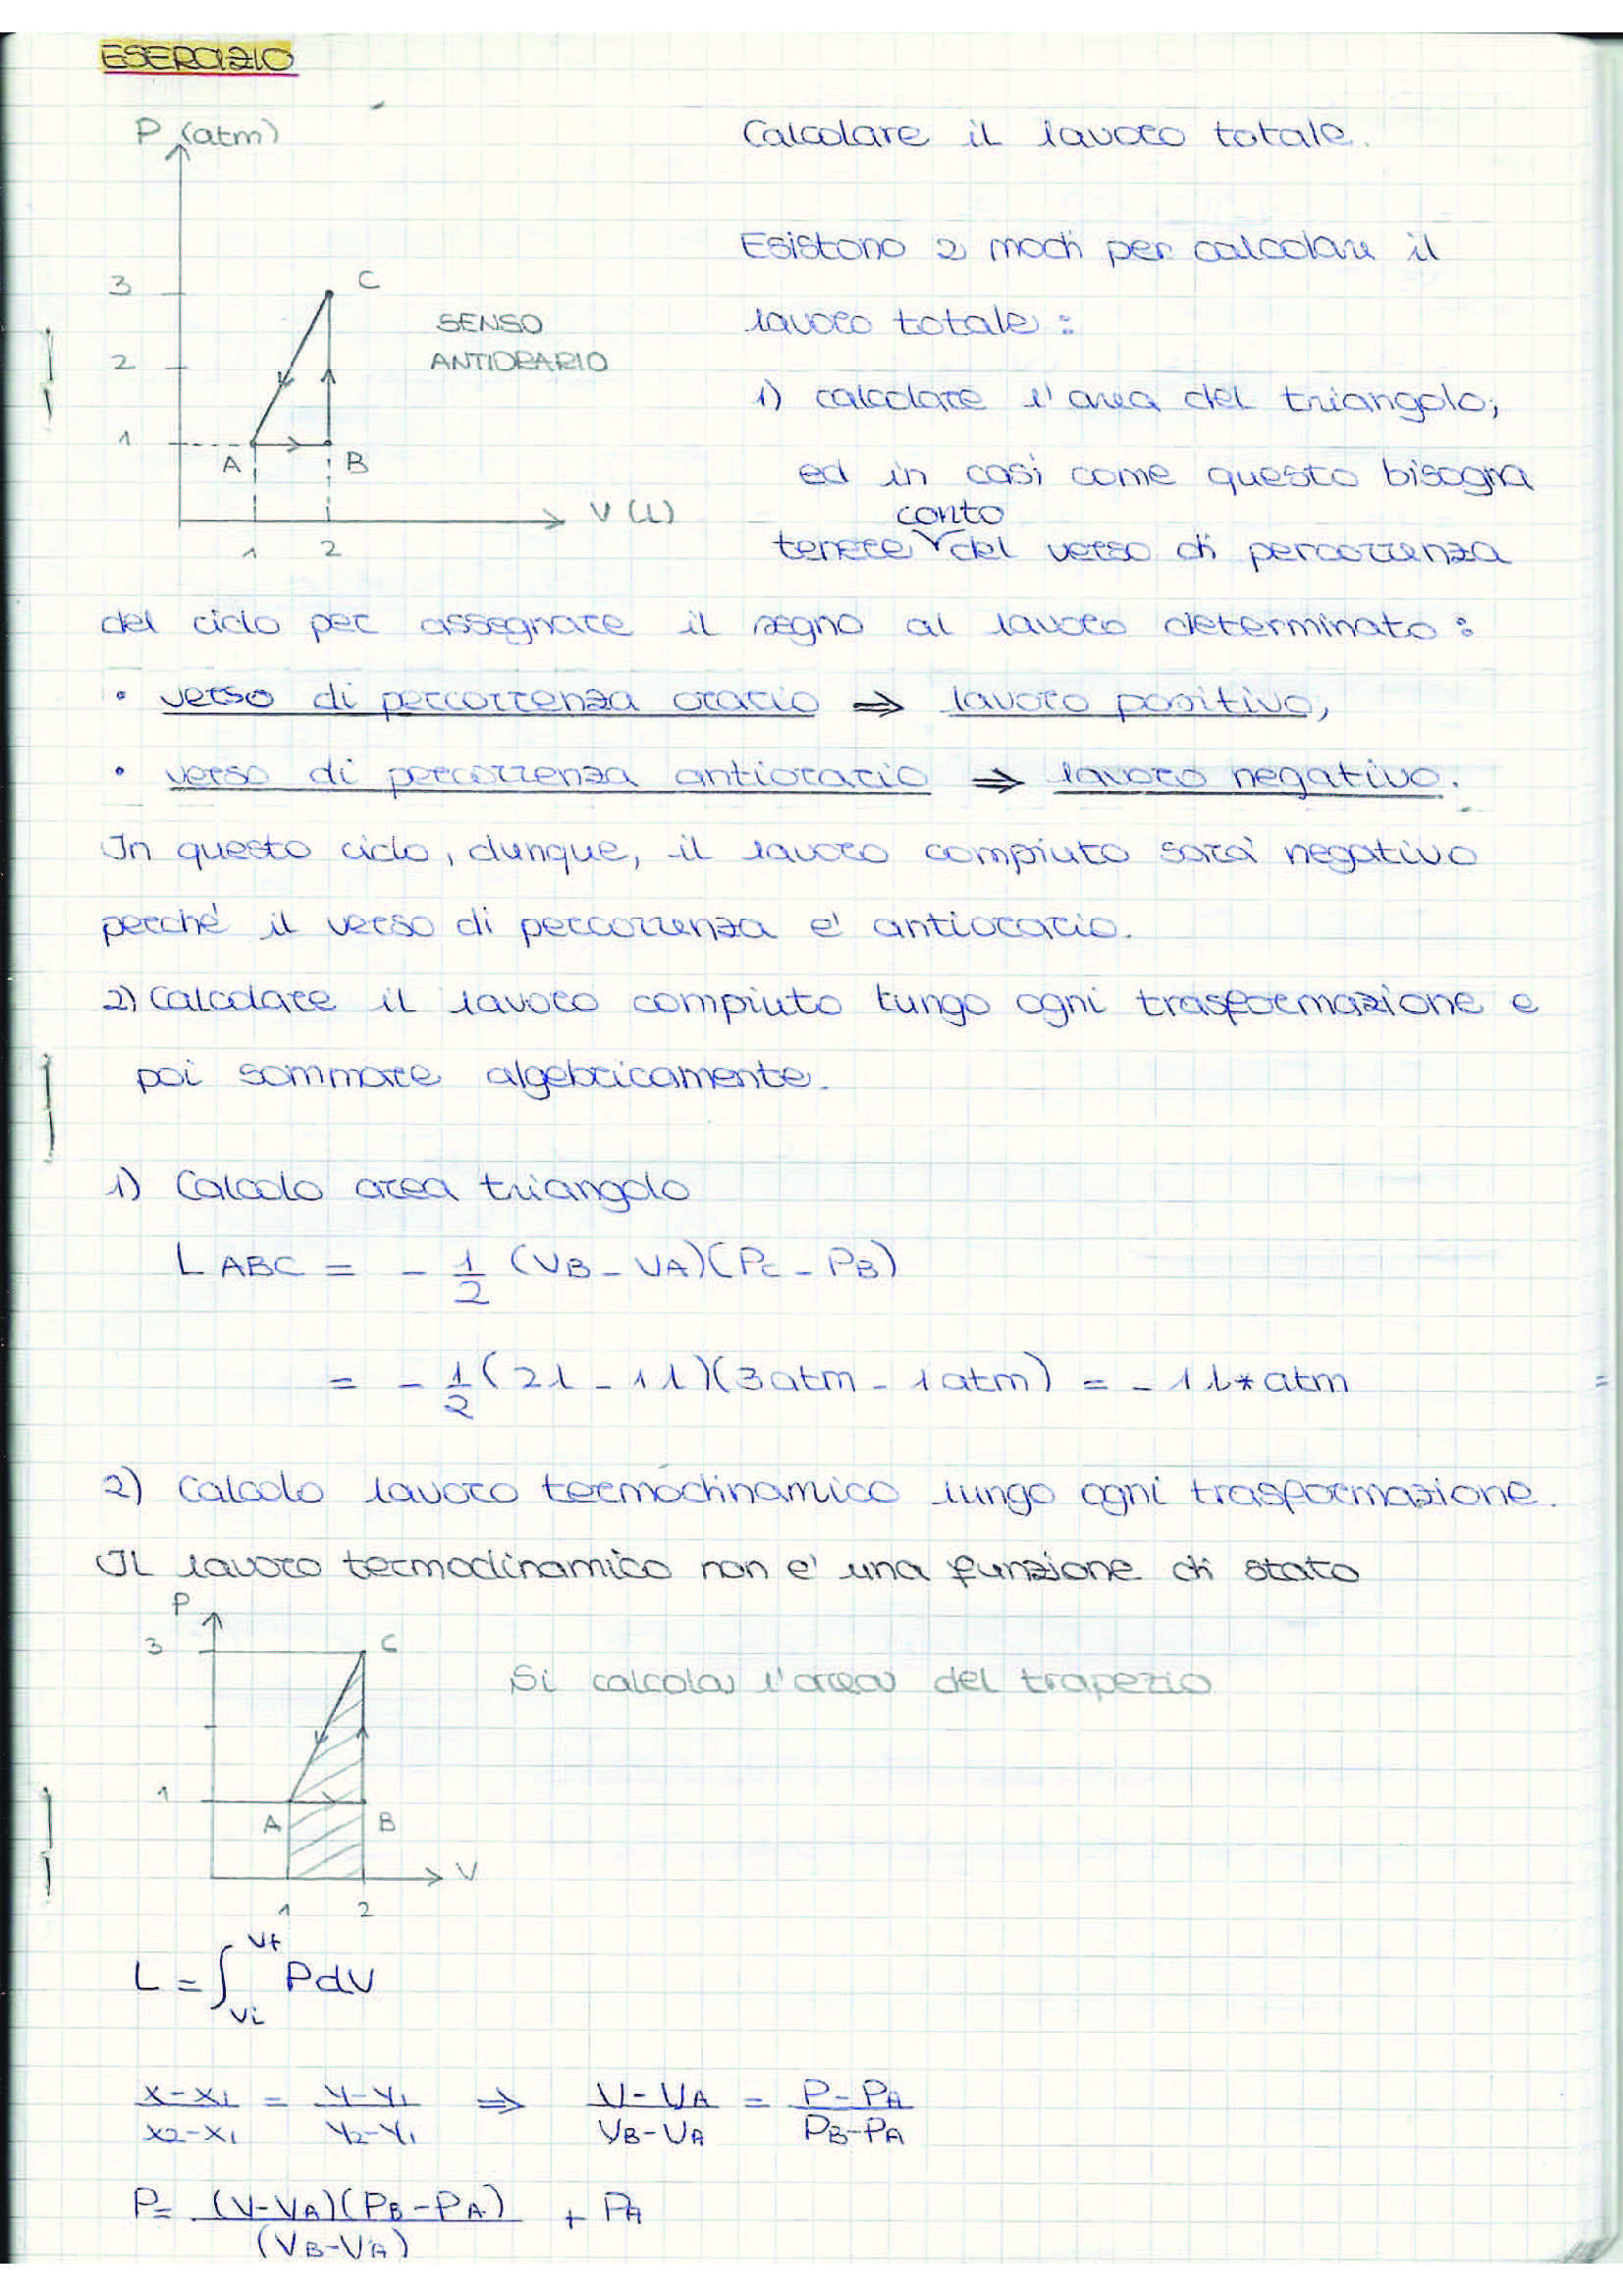 ESERCIZIO
P (atm)
Calcolare il lavoro totale.
Esistono 2 modi per calcolare il
3
C
SENSO
lavoro totale:
2
ANTIORARIO
1) calcolare l'area del triangolo;
1
A
B
ed in casi come questo bisogna
V (L)
conto
1
2
tenere del verso di percorrenza
del ciclo per assegnare il segno al lavoro determinato:
• verso di percorrenza orario ⇒ lavoro positivo,
• verso di percorrenza antiorario ⇒ lavoro negativo.
In questo ciclo, dunque, il lavoro compiuto sarà negativo
perché il verso di percorrenza e' antiorario.
2) Calcolare il lavoro compiuto lungo ogni trasformazione e
poi sommare algebricamente.
1) Calcolo area triangolo
L ABC = - 1/2 (VB - VA)(PC - PB)
= - 1/2 (2L - 1L)(3atm - 1atm) = - 1 L*atm
2) Calcolo lavoro termodinamico lungo ogni trasformazione.
Il lavoro termodinamico non e' una funzione di stato
P
3
C
Si calcola l'area del trapezio
1
A
B
V
1
2
L = ∫ Vi Vf PdV
x-x1/x2-x1 = y-y1/y2-y1 ⇒ V-VA/VB-VA = P-PA/PB-PA
P= (V-VA)(PB-PA)/(VB-VA) + PA